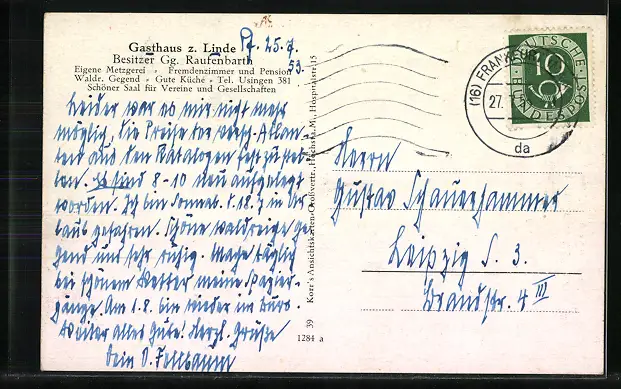 Gasthaus z. Linde Pf. 25.7.
Besitzer Gg. Raufenbarth 53.
Eigene Metzgerei - Fremdenzimmer und Pension
Waldr. Gegend - Gute Küche - Tel. Usingen 381
Schöner Saal für Vereine und Gesellschaften
Leider war es mir nicht mehr
möglich, die Preise der
aus den Katalogen festzustel-
len. Es sind 8-10 neu aufgelegt
worden. Ich bin Sonnab. d. 18.7. in Ur-
laub gefahren. Schöne waldreiche Ge-
gend und sehr ruhig. Mache täglich
bei schönem Wetter meine Spazier-
gänge. Am 1.8. bin wieder im Büro.
Weiter alles Gute! Herzl. Grüße
Dein O. Fellbaum
39
1284 a
Korr's Ansichtskarten-Großvertr., Höchst a. M., Hospitalstr. 15
Herrn
Gustav Schauerhammer
Leipzig S. 3.
Brandstr. 4 III
DEUTSCHE
BUNDESPOST
10
(16) FRANKFURT
27.
da